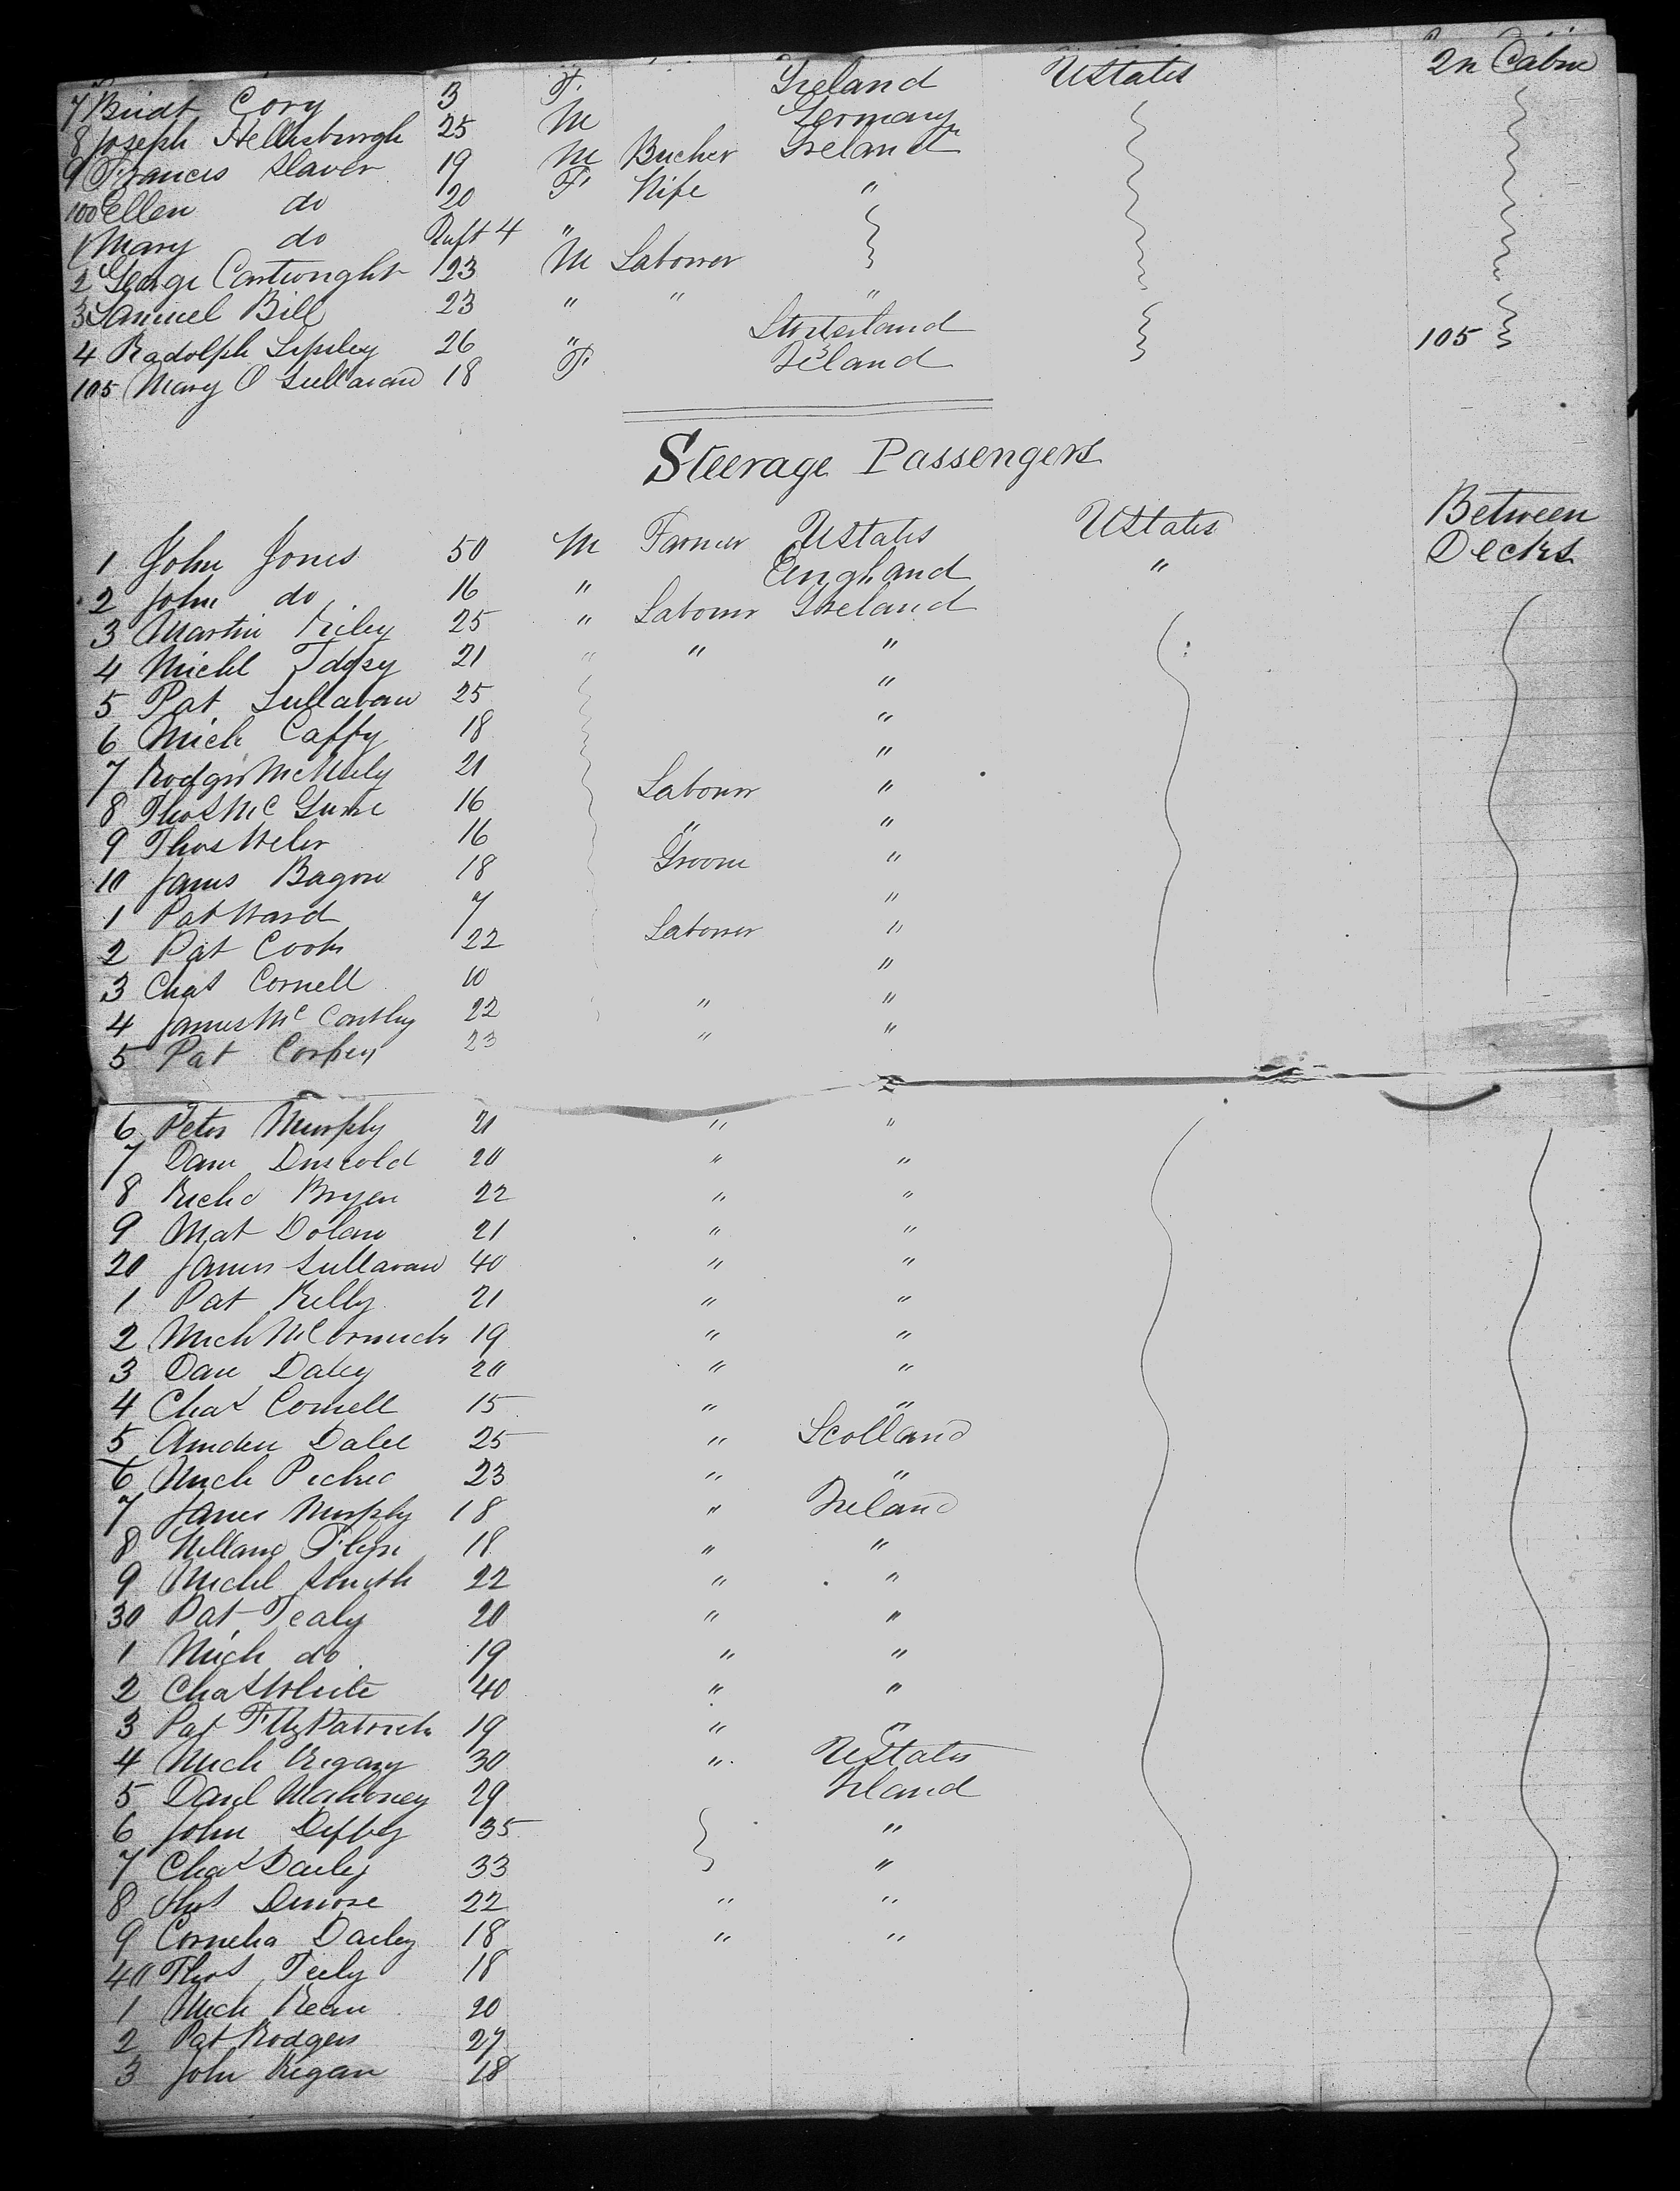 7 Bridt Cory 3 F. Ireland UStates 2n Cabin
8 Joseph Hellesburgh 25 M Germany
9 Frances Slaver 19 M Bucher Ireland
100 Ellen do 20 F Wife "
1 Mary do Inft 4 "
2 George Cartwright 23 M Labourer
3 Samuel Bill 23 " " "
4 Radolph Lipsley 26 " 105
105 Mary O Sullavan 18 F Ireland
Steerage Passengers
1 John Jones 50 M Farmer UStates UStates Between Decks
2 John do 16 " England "
3 Martin Riley 25 " Labourer Ireland
4 Michl 21 " " "
5 Pat Sullavan 25 "
6 Mich Caffy 18 "
7 Rodger McNuly 21 "
8 Thos Mc 16 Labourer "
9 Thos 16 " "
10 James Bagon 18 Groom "
1 Pat Ward 7 "
2 Pat Cook 22 Labourer "
3 Chas Cornell 10 "
4 James Mc Conthy 22 " "
5 Pat Corkey 23 " "
6 Peter Murphy 21 " "
7 Dan Driscold 20 " "
8 Richd Bryen 22 " "
9 Mat Dolan 21 " "
20 James Sullavan 40 " "
1 Pat Kelly 21 " "
2 Mich McCormick 19 " "
3 Dan Daley 20 " "
4 Chas Cornell 15 " "
5 Dalel 25 " Scolland
6 Mich 23 " "
7 James Murphy 18 " Ireland
8 Willam Flyn 18 " "
9 Michl Smith 22 " "
30 Pat Fealy 20 " "
1 Mich do 19 " "
2 Chas White 40 " "
3 Pat Fitzpatrick 19 " "
4 Mich 30 " UStates
5 Danl Mahoney 29 Irland
6 John Deffey 35 "
7 Chas Daily 33 "
8 Thos 22 " "
9 Cornelia Dailey 18 " "
40 Thos Feely 18
1 Mich Kean 20
2 Pat Rodgers 27
3 John Regan 18